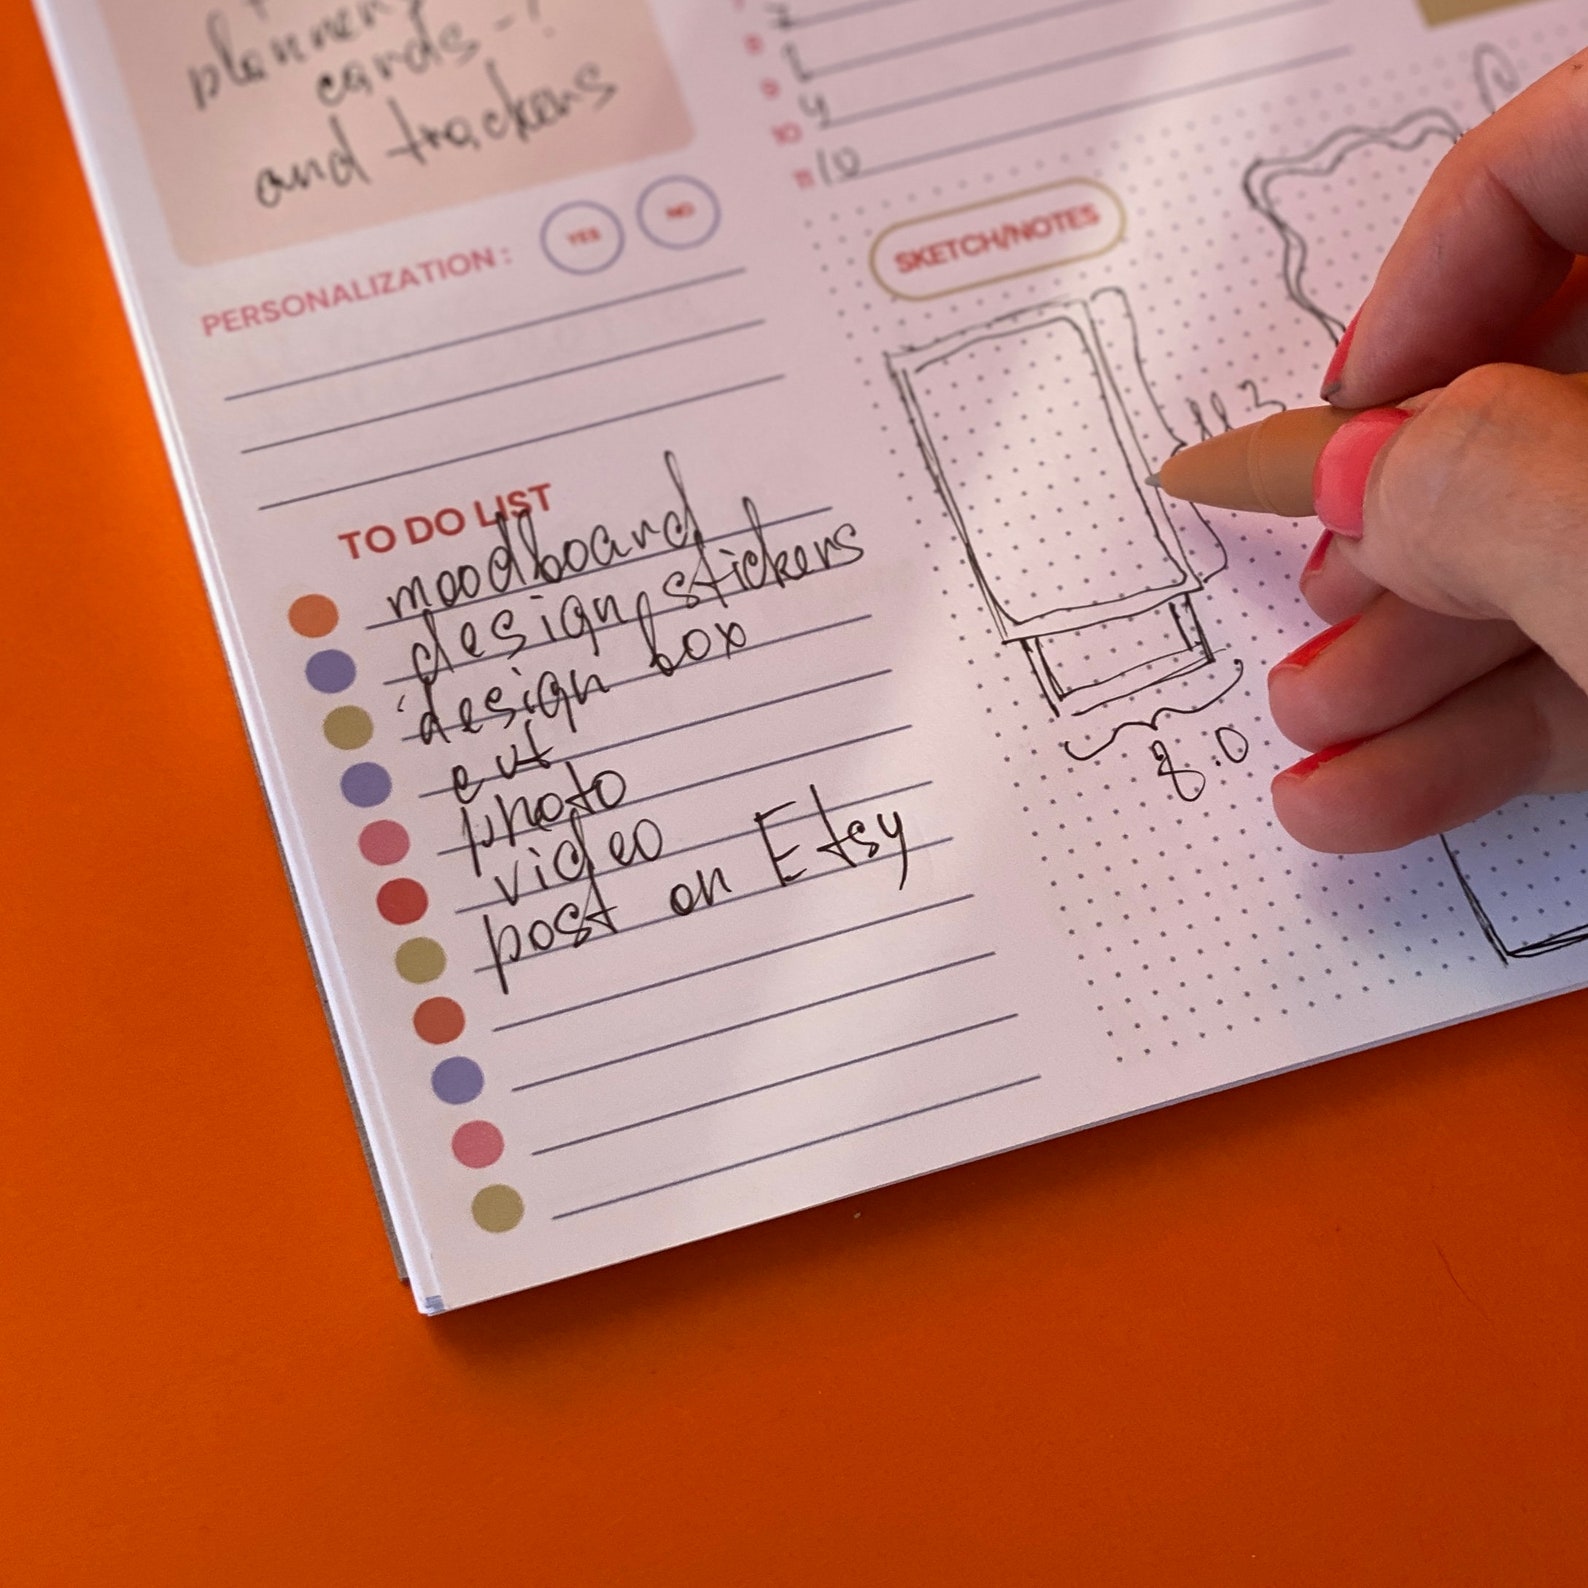 planners
cards -!
and trackers
PERSONALIZATION: YES NO
TO DO LIST
moodboard
design stickers
design box
cut
photo
video
post on Etsy
8
9
10
11 10
SKETCH/NOTES
8.0